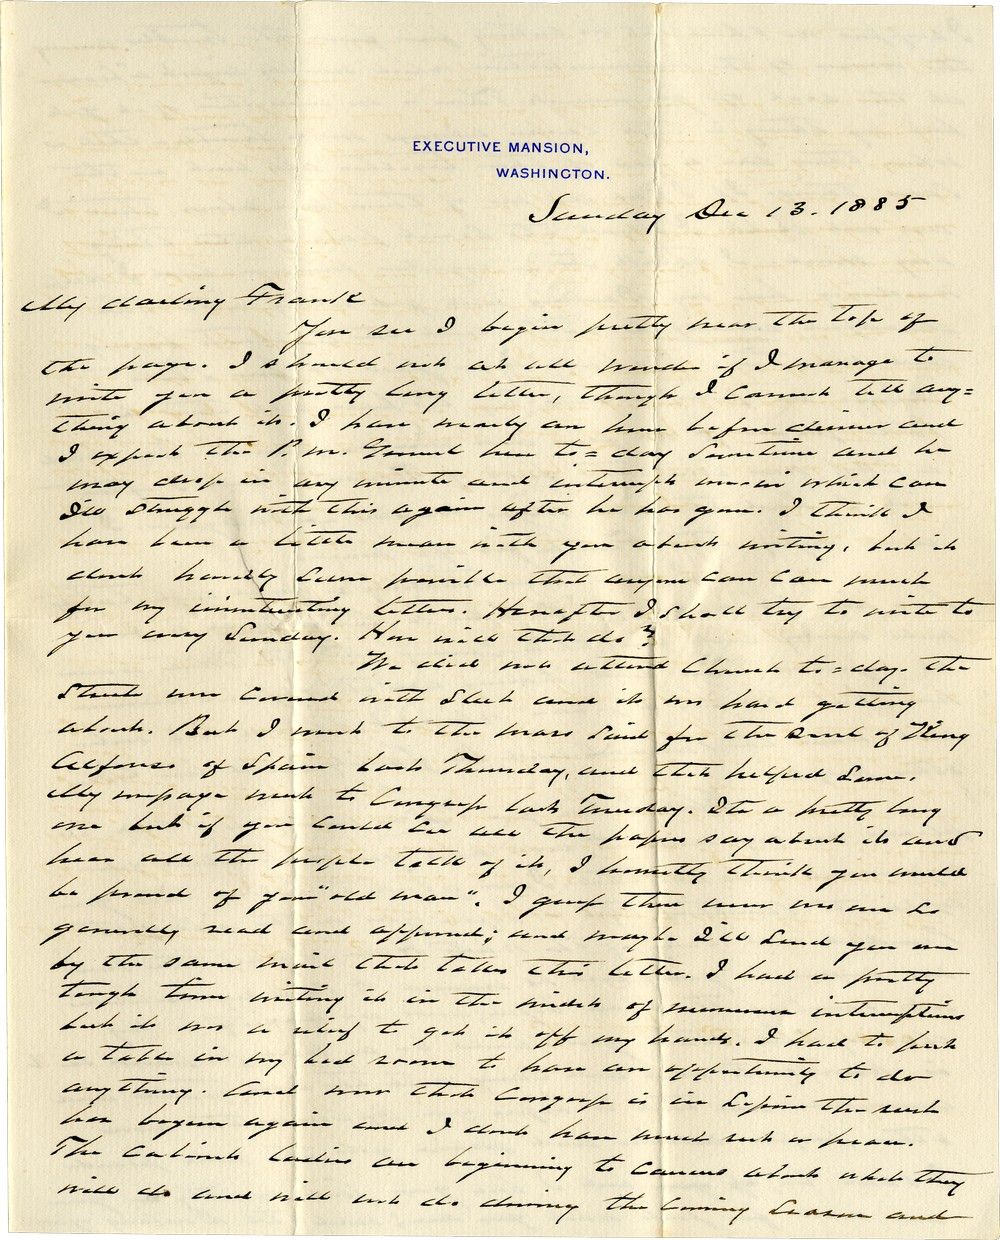 EXECUTIVE MANSION,
WASHINGTON.
Sunday Dec 13. 1885
My darling Frank
You see I begin pretty near the top of
the page. I should not at all wonder if I manage to
write you a pretty long letter, though I cannot tell any=
thing about it. I have nearly an hour before dinner and
I expect the P. M. General here to=day sometime and he
may drop in any minute and interrupt me in which case
I'll struggle with this again after he has gone. I think I
have been a little mean with you about writing, but it
dont hardly seem possible that anyone can care much
for my uninteresting letters. Hereafter I shall try to write to
you every Sunday. How will that do?
We did not attend Church to=day. The
streets were covered with sleet and it was hard getting
about. But I went to the mass said for the soul of King
Alfonso of Spain last Thursday, and that helped some.
My message went to Congress last Tuesday. Its a pretty long
one but if you could see all the papers say about it and
hear all the people talk of it, I honestly think you would
be proud of your "old man". I guess there never was one so
generally read and approved; and maybe I'll send you one
by the same mail that takes this letter. I had a pretty
tough time writing it in the midst of numerous interruptions
but it was a relief to get it off my hands. I had to put
a table in my bed room to have an opportunity to do
anything. And now that Congress is in session the rush
has begun again and I dont have much rest or peace.
The Cabinet ladies are beginning to caucus about what they
will do and will not do during the coming season and